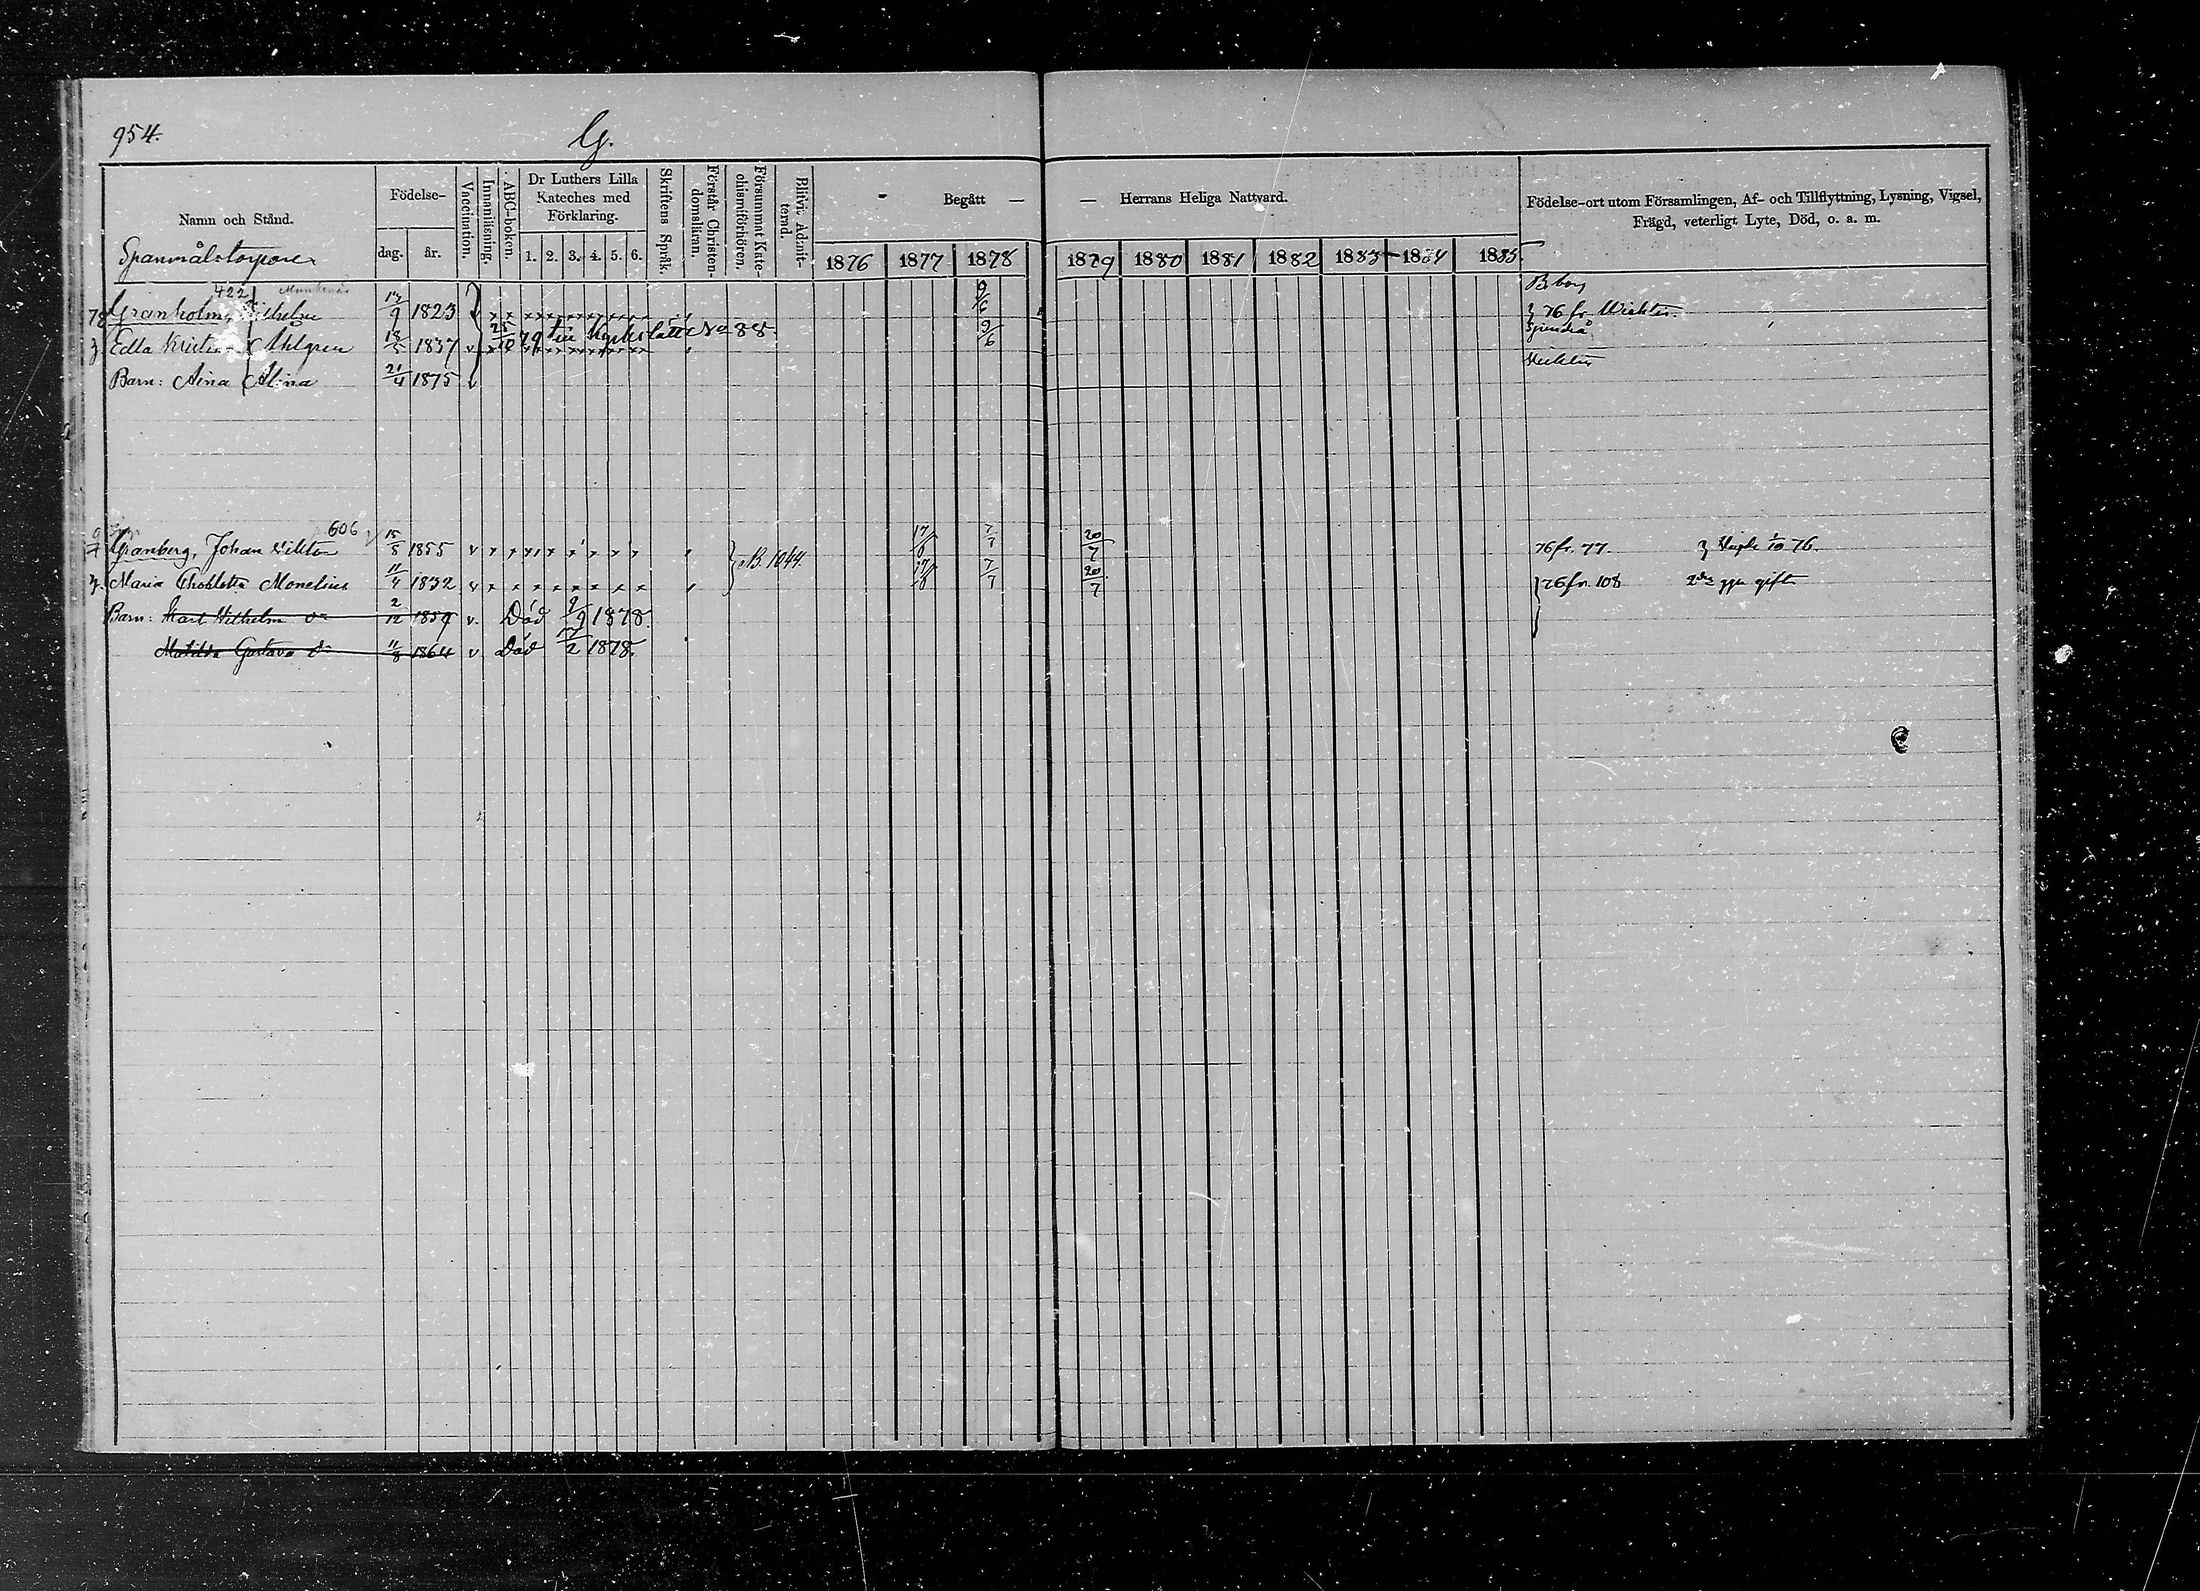 954.
G.
Namn och Stånd.
Födelse-
dag.
år.
Vaccination.
Innanläsning.
ABC-boken.
Dr Luthers Lilla
Kateches med
Förklaring.
1. 2. 3. 4. 5. 6.
Skriftens Språk.
Förstår Christen-
domsläran.
Försummat Kate-
chismiförhören.
Blifvit Admit-
terad.
Begått —
— Herrans Heliga Nattvard.
1876 1877 1878 1879 1880 1881 1882 1883 1884 1885.
Födelse-ort utom Församlingen, Af- och Tillflyttning, Lysning, Vigsel,
Frägd, veterligt Lyte, Död, o. a. m.
Spanmålstorpare
422
78 Granholm, 17/9 1823 9/6 76 fr.
Edla Ahlgren 1837 v 25/10 79 till Kyrkslätt No 88 9/6
Barn: Aina Alina 21/4 1875
606
Granberg, Johan Viktor 15/5 1855 v 17/6 7/7 20/7 76 fr. 77. 1/10 76.
B. 1044.
Maria Monelius 11/4 1832 v 17/6 7/7 20/7 76 fr. 108 gift
Barn: Karl Wilhelm 2/12 1859 v. Död 9/9 1878.
Matilda Gustava 11/8 1864 v Död 17/2 1878.